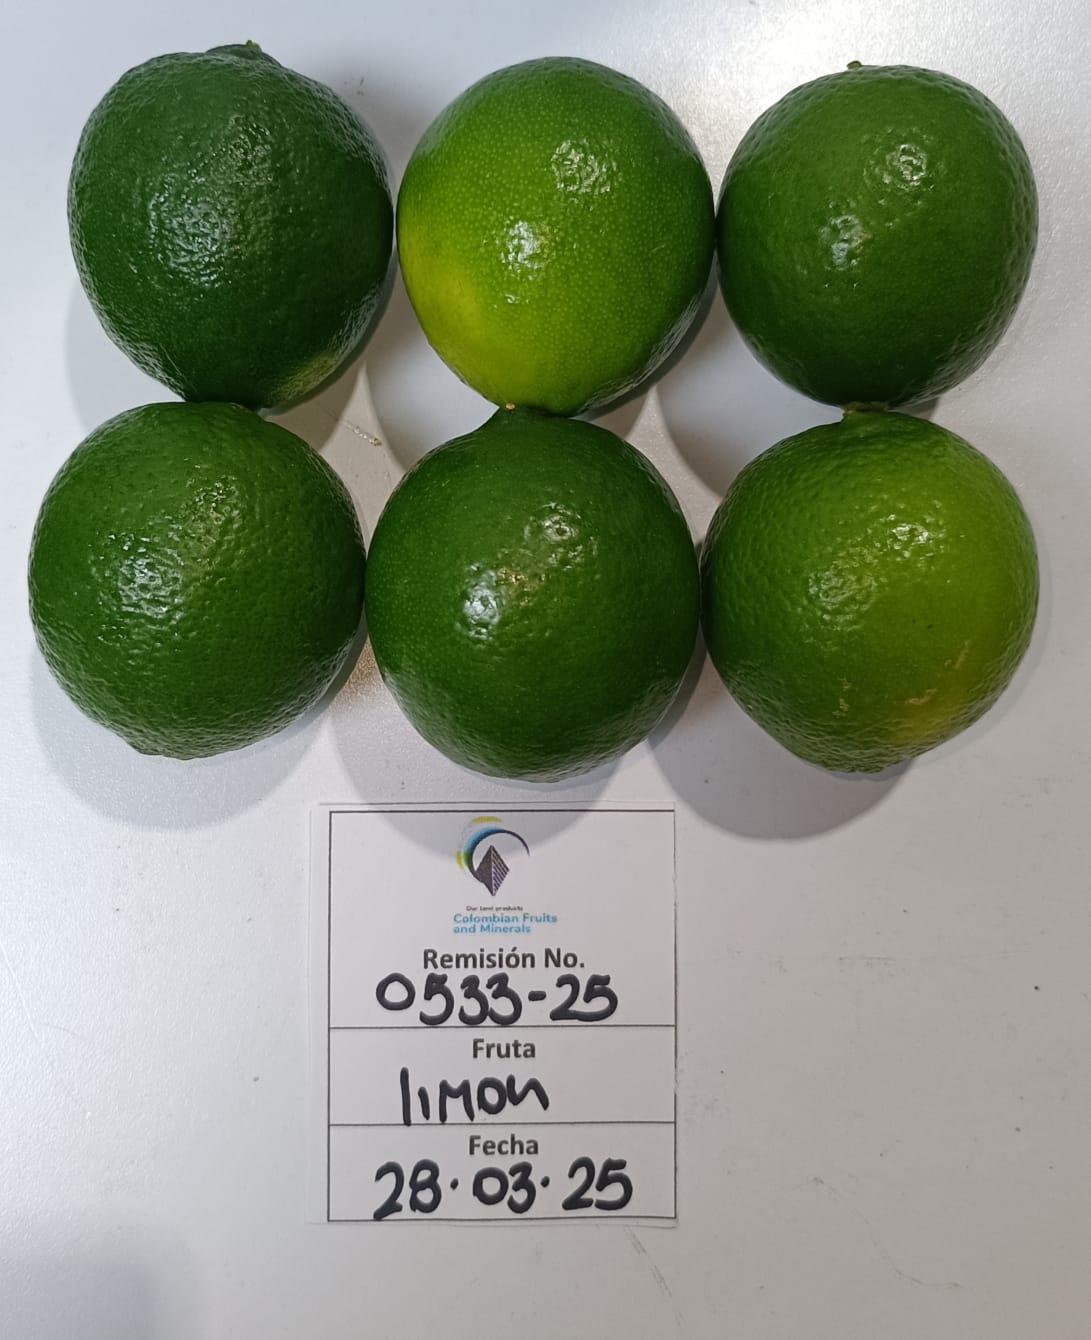 Our land products
Colombian Fruits
and Minerals
Remisión No.
0533-25
Fruta
limon
Fecha
28.03.25